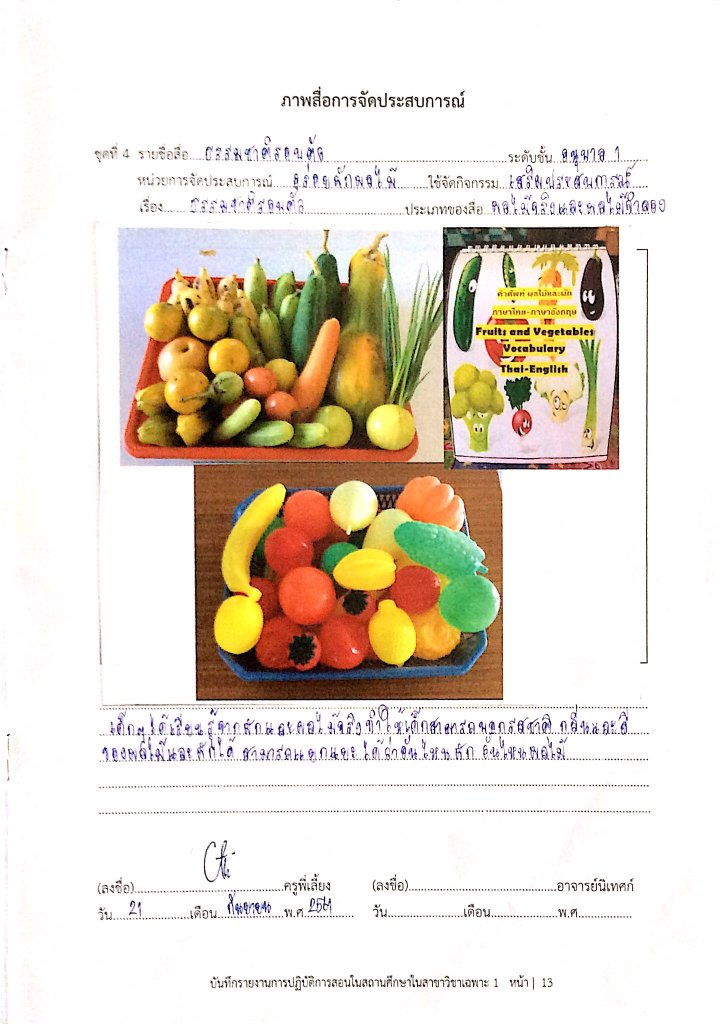 ภาพสื่อการจัดประสบการณ์
ชุดที่ 4 รายชื่อสื่อ ธรรมชาติรอบตัว ระดับชั้น อนุบาล 1
หน่วยการจัดประสบการณ์ อร่อยผักผลไม้ ใช้จัดกิจกรรม เสริมประสบการณ์
เรื่อง ธรรมชาติรอบตัว ประเภทของสื่อ ผลไม้จริงและผลไม้จำลอง
คำศัพท์ ผลไม้และผัก
ภาษาไทย-ภาษาอังกฤษ
Fruits and Vegetables
Vocabulary
Thai-English
เด็กๆ ได้เรียนรู้จากผักและผลไม้จริง ทำให้เด็กสามารถบอกรสชาติ กลิ่นและสี
ของผลไม้และผักได้ สามารถแยกแยะได้ว่าอันไหนผัก อันไหนผลไม้
(ลงชื่อ) ครูพี่เลี้ยง (ลงชื่อ) อาจารย์นิเทศก์
วัน 21 เดือน กันยายน พ.ศ. วัน เดือน พ.ศ
บันทึกรายงานการปฏิบัติการสอนในสถานศึกษาในสาขาวิชาเฉพาะ 1 หน้า | 13